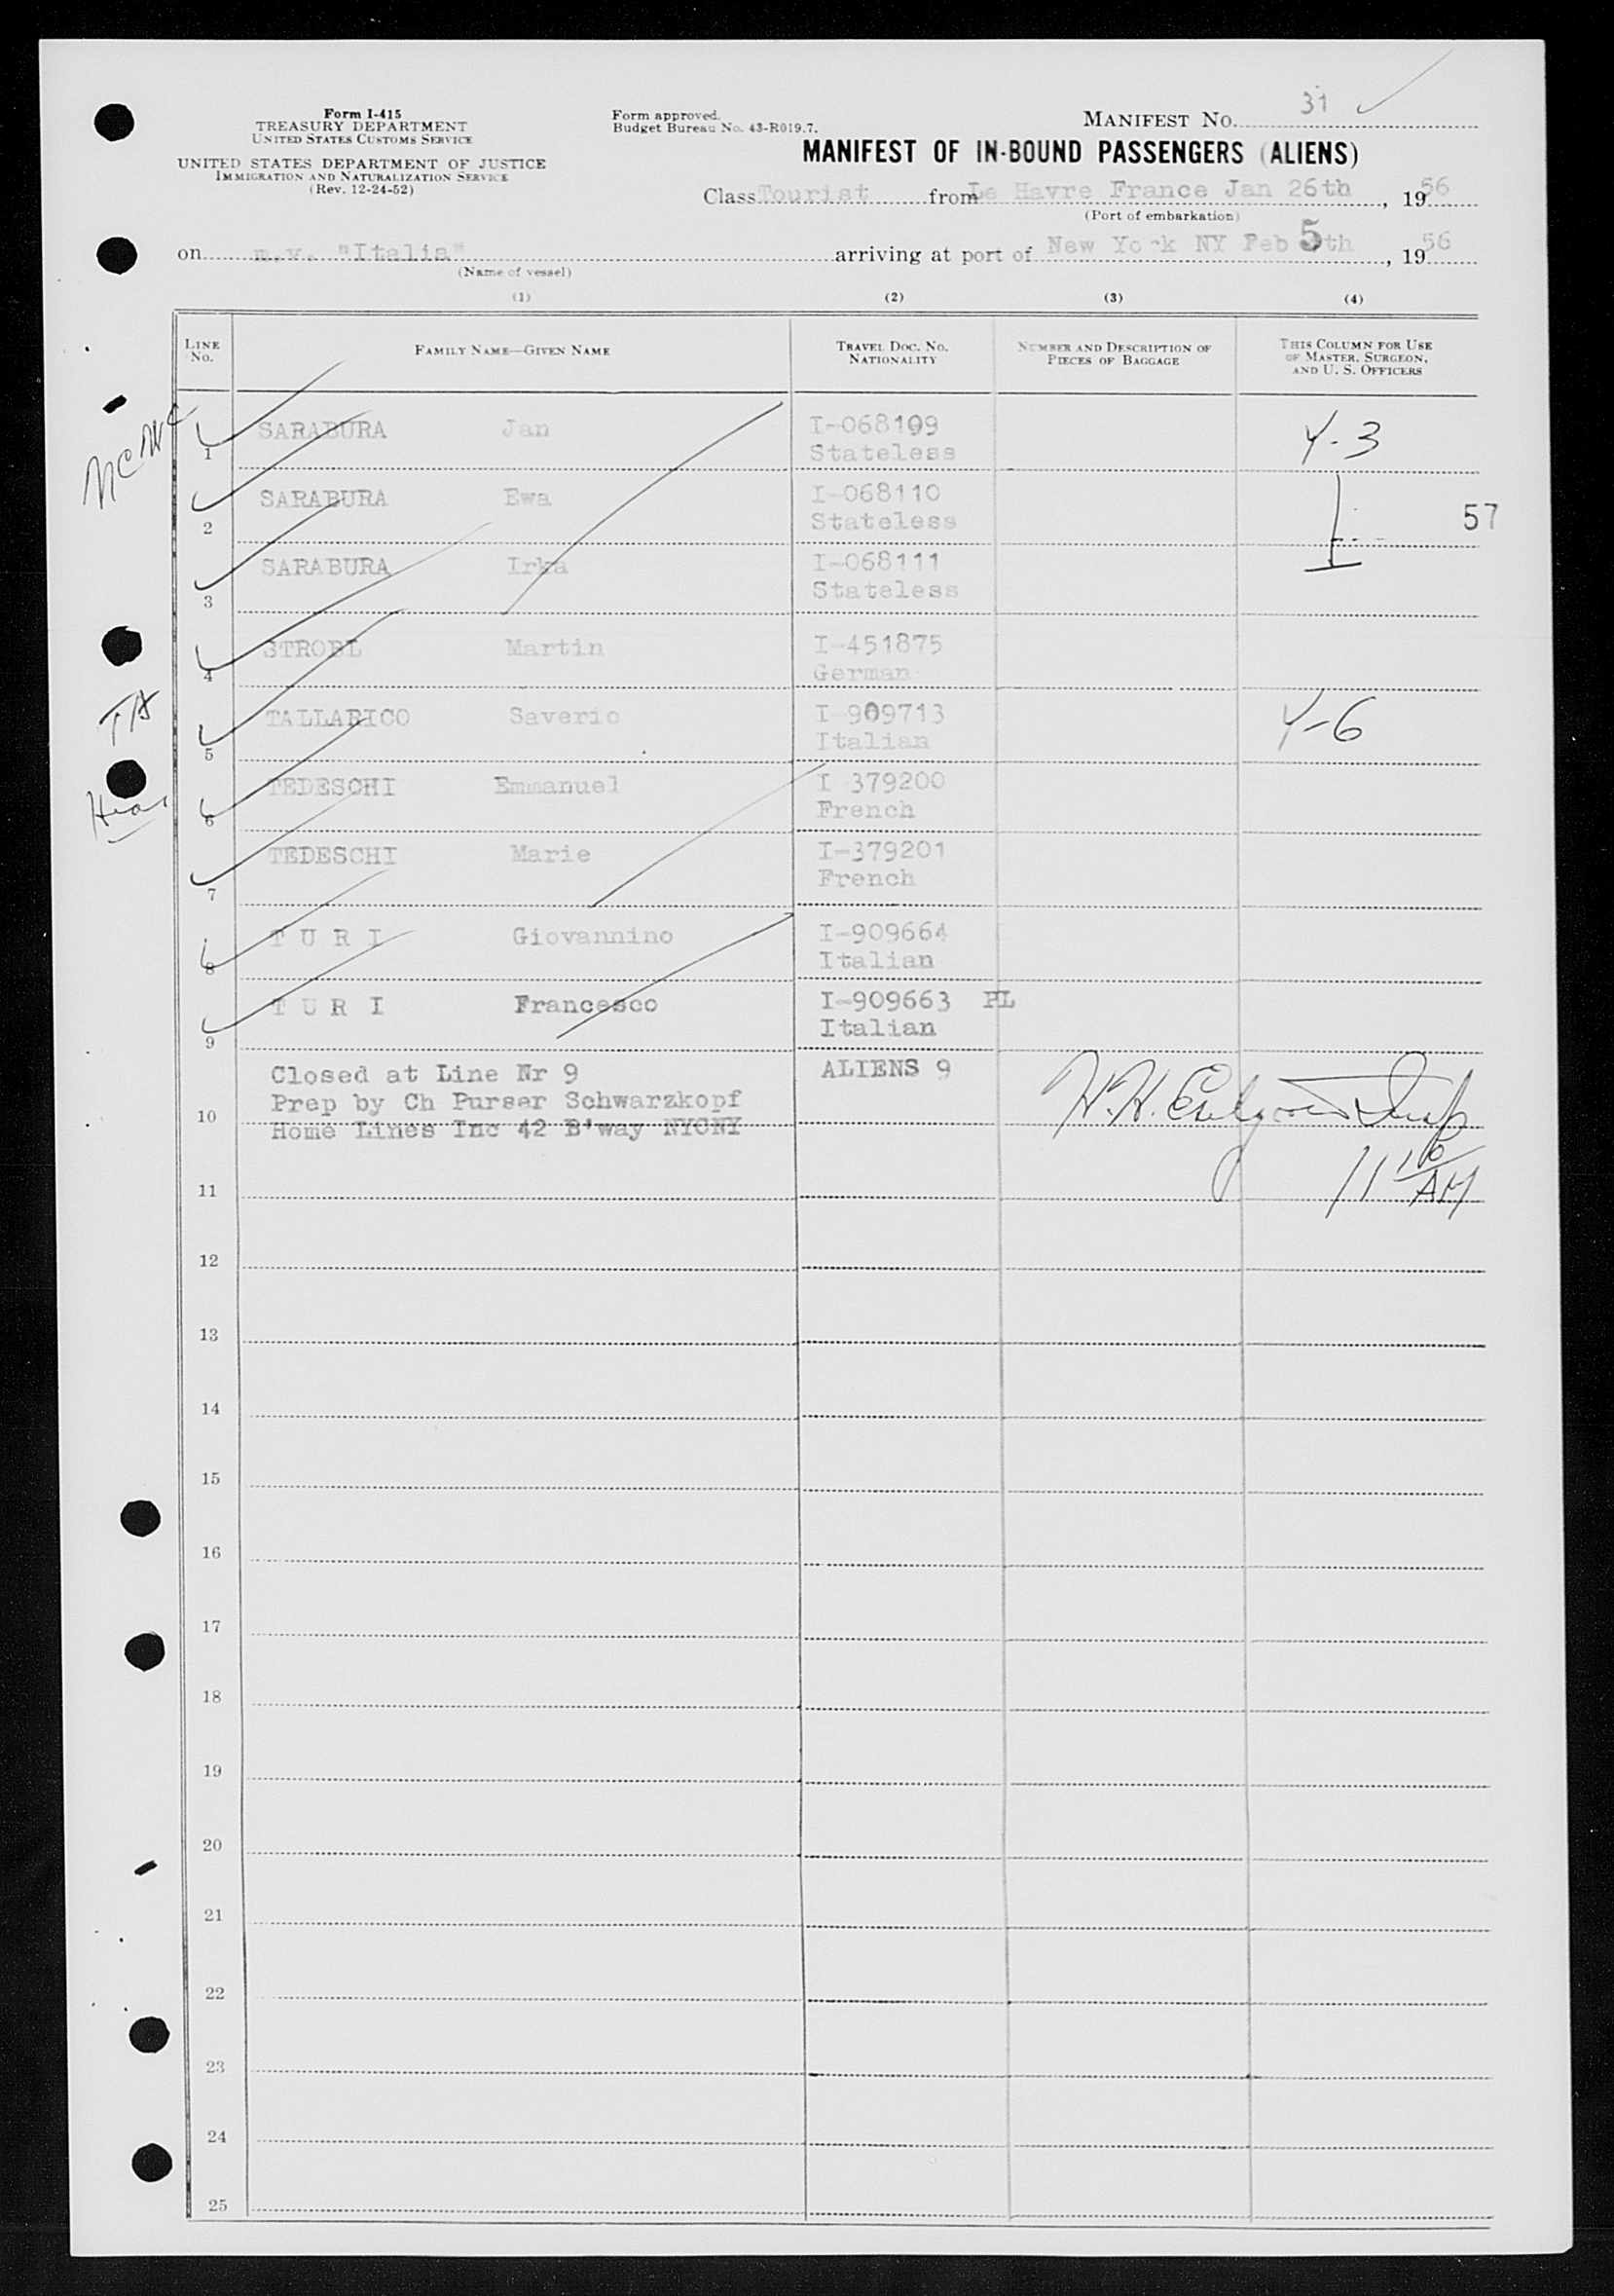 Form I-415
TREASURY DEPARTMENT
UNITED STATES CUSTOMS SERVICE
UNITED STATES DEPARTMENT OF JUSTICE
IMMIGRATION AND NATURALIZATION SERVICE
(Rev. 12-24-52)
Form approved.
Budget Bureau No. 43-R019.7.
MANIFEST NO. 31
MANIFEST OF IN-BOUND PASSENGERS (ALIENS)
Class Tourist from Le Havre France Jan 26th, 1956
(Port of embarkation)
on m.v. "Italia" arriving at port of New York NY Feb 5th, 1956
(Name of vessel)
(1) (2) (3) (4)
LINE NO. FAMILY NAME—GIVEN NAME TRAVEL DOC. NO. NATIONALITY NUMBER AND DESCRIPTION OF PIECES OF BAGGAGE THIS COLUMN FOR USE OF MASTER, SURGEON, AND U. S. OFFICERS
1 SARABURA Jan I-068109 Y-3
Stateless
2 SARABURA Ewa I-068110 57
Stateless
3 SARABURA Irka I-068111
Stateless
4 STROBL Martin I-451875
German
5 TALLARICO Saverio I-909713 Y-6
Italian
6 TEDESCHI Emmanuel I 379200
French
7 TEDESCHI Marie I-379201
French
8 T U R I Giovannino I-909664
Italian
9 T U R I Francesco I-909663 PL
Italian
Closed at Line Nr 9 ALIENS 9
10 Prep by Ch Purser Schwarzkopf
Home Lines Inc 42 B'way NYCNY
11 11 10 AM
12
13
14
15
16
17
18
19
20
21
22
23
24
25